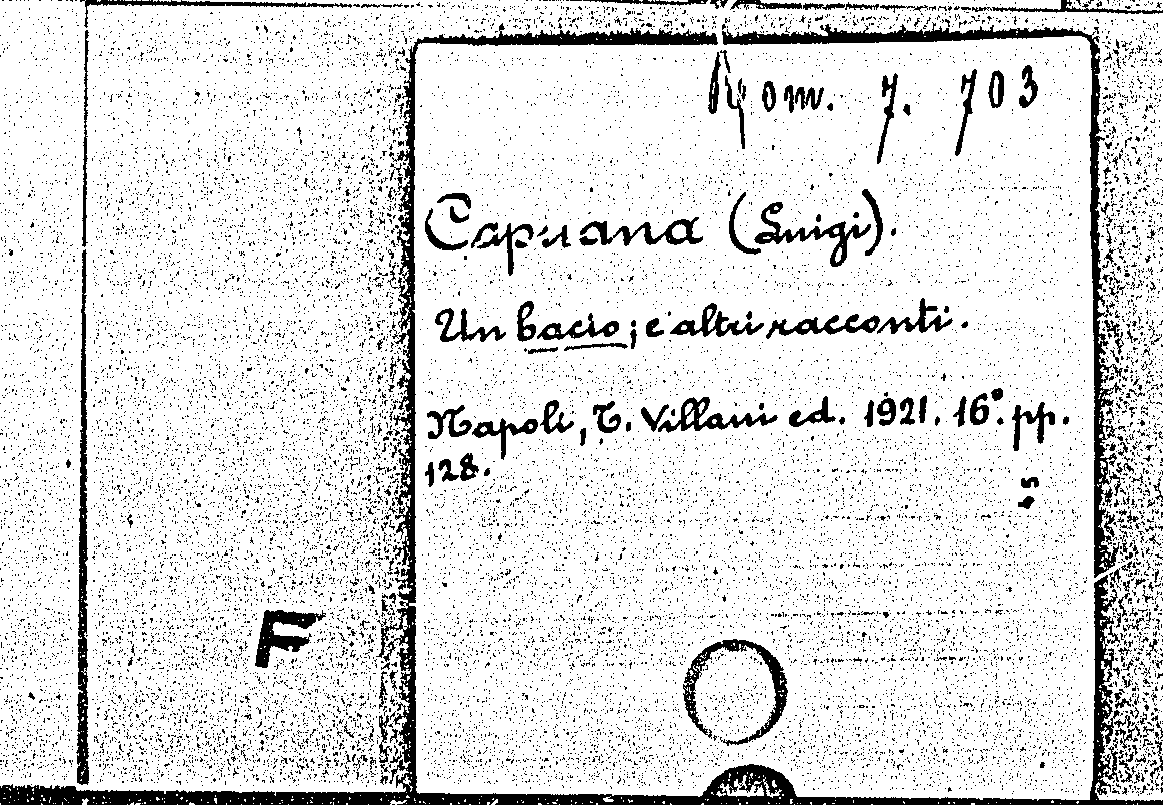 Rom. 7. 703
Capuana (Luigi).
Un bacio; e altri racconti.
Napoli, T. Villani ed. 1921. 16°. pp.
128.
F